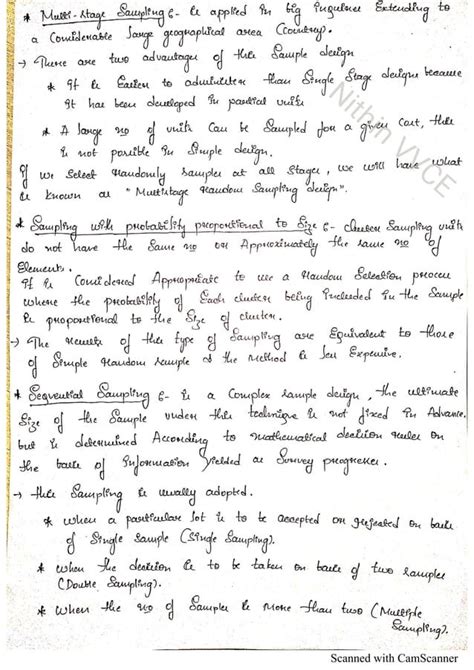 * Multi-stage Sampling :- is applied in big inquires Extending to
a Considerable large geographical area (Country).
→ There are two advantages of this Sample design
* It is Easier to administer than Single Stage design because
it has been developed in partial units
* A large no of units Can be Sampled for a given Cost, this
is not possible in Simple design.
If we Select Randomly samples at all Stages, we will have what
is known as "Multistage Random Sampling design".
* Sampling with probability proportional to Size :- Cluster Sampling units
do not have the Same no or Approximately the same no of
Elements.
It is Considered Appropriate to use a Random Selection process
where the probability of Each cluster being included in the Sample
is proportional to the Size of cluster.
→ The results of this type of Sampling are Equivalent to those
of Simple Random sample & the Method is less Expensive.
* Sequential Sampling :- is a Complex sample design, the ultimate
Size of the Sample under this technique is not fixed in Advance.
but is determined According to mathematical decision rules on
the basis of information yielded as Survey progresses.
→ this Sampling is usually adopted.
* when a particular lot is to be accepted or rejected on basis
of Single Sample (Single Sampling).
* when the decision is to be taken on basis of two samples
(Double Sampling).
* when the no of Samples is More than two (Multiple
Sampling).
Nithin VVCE
Scanned with CamScanner